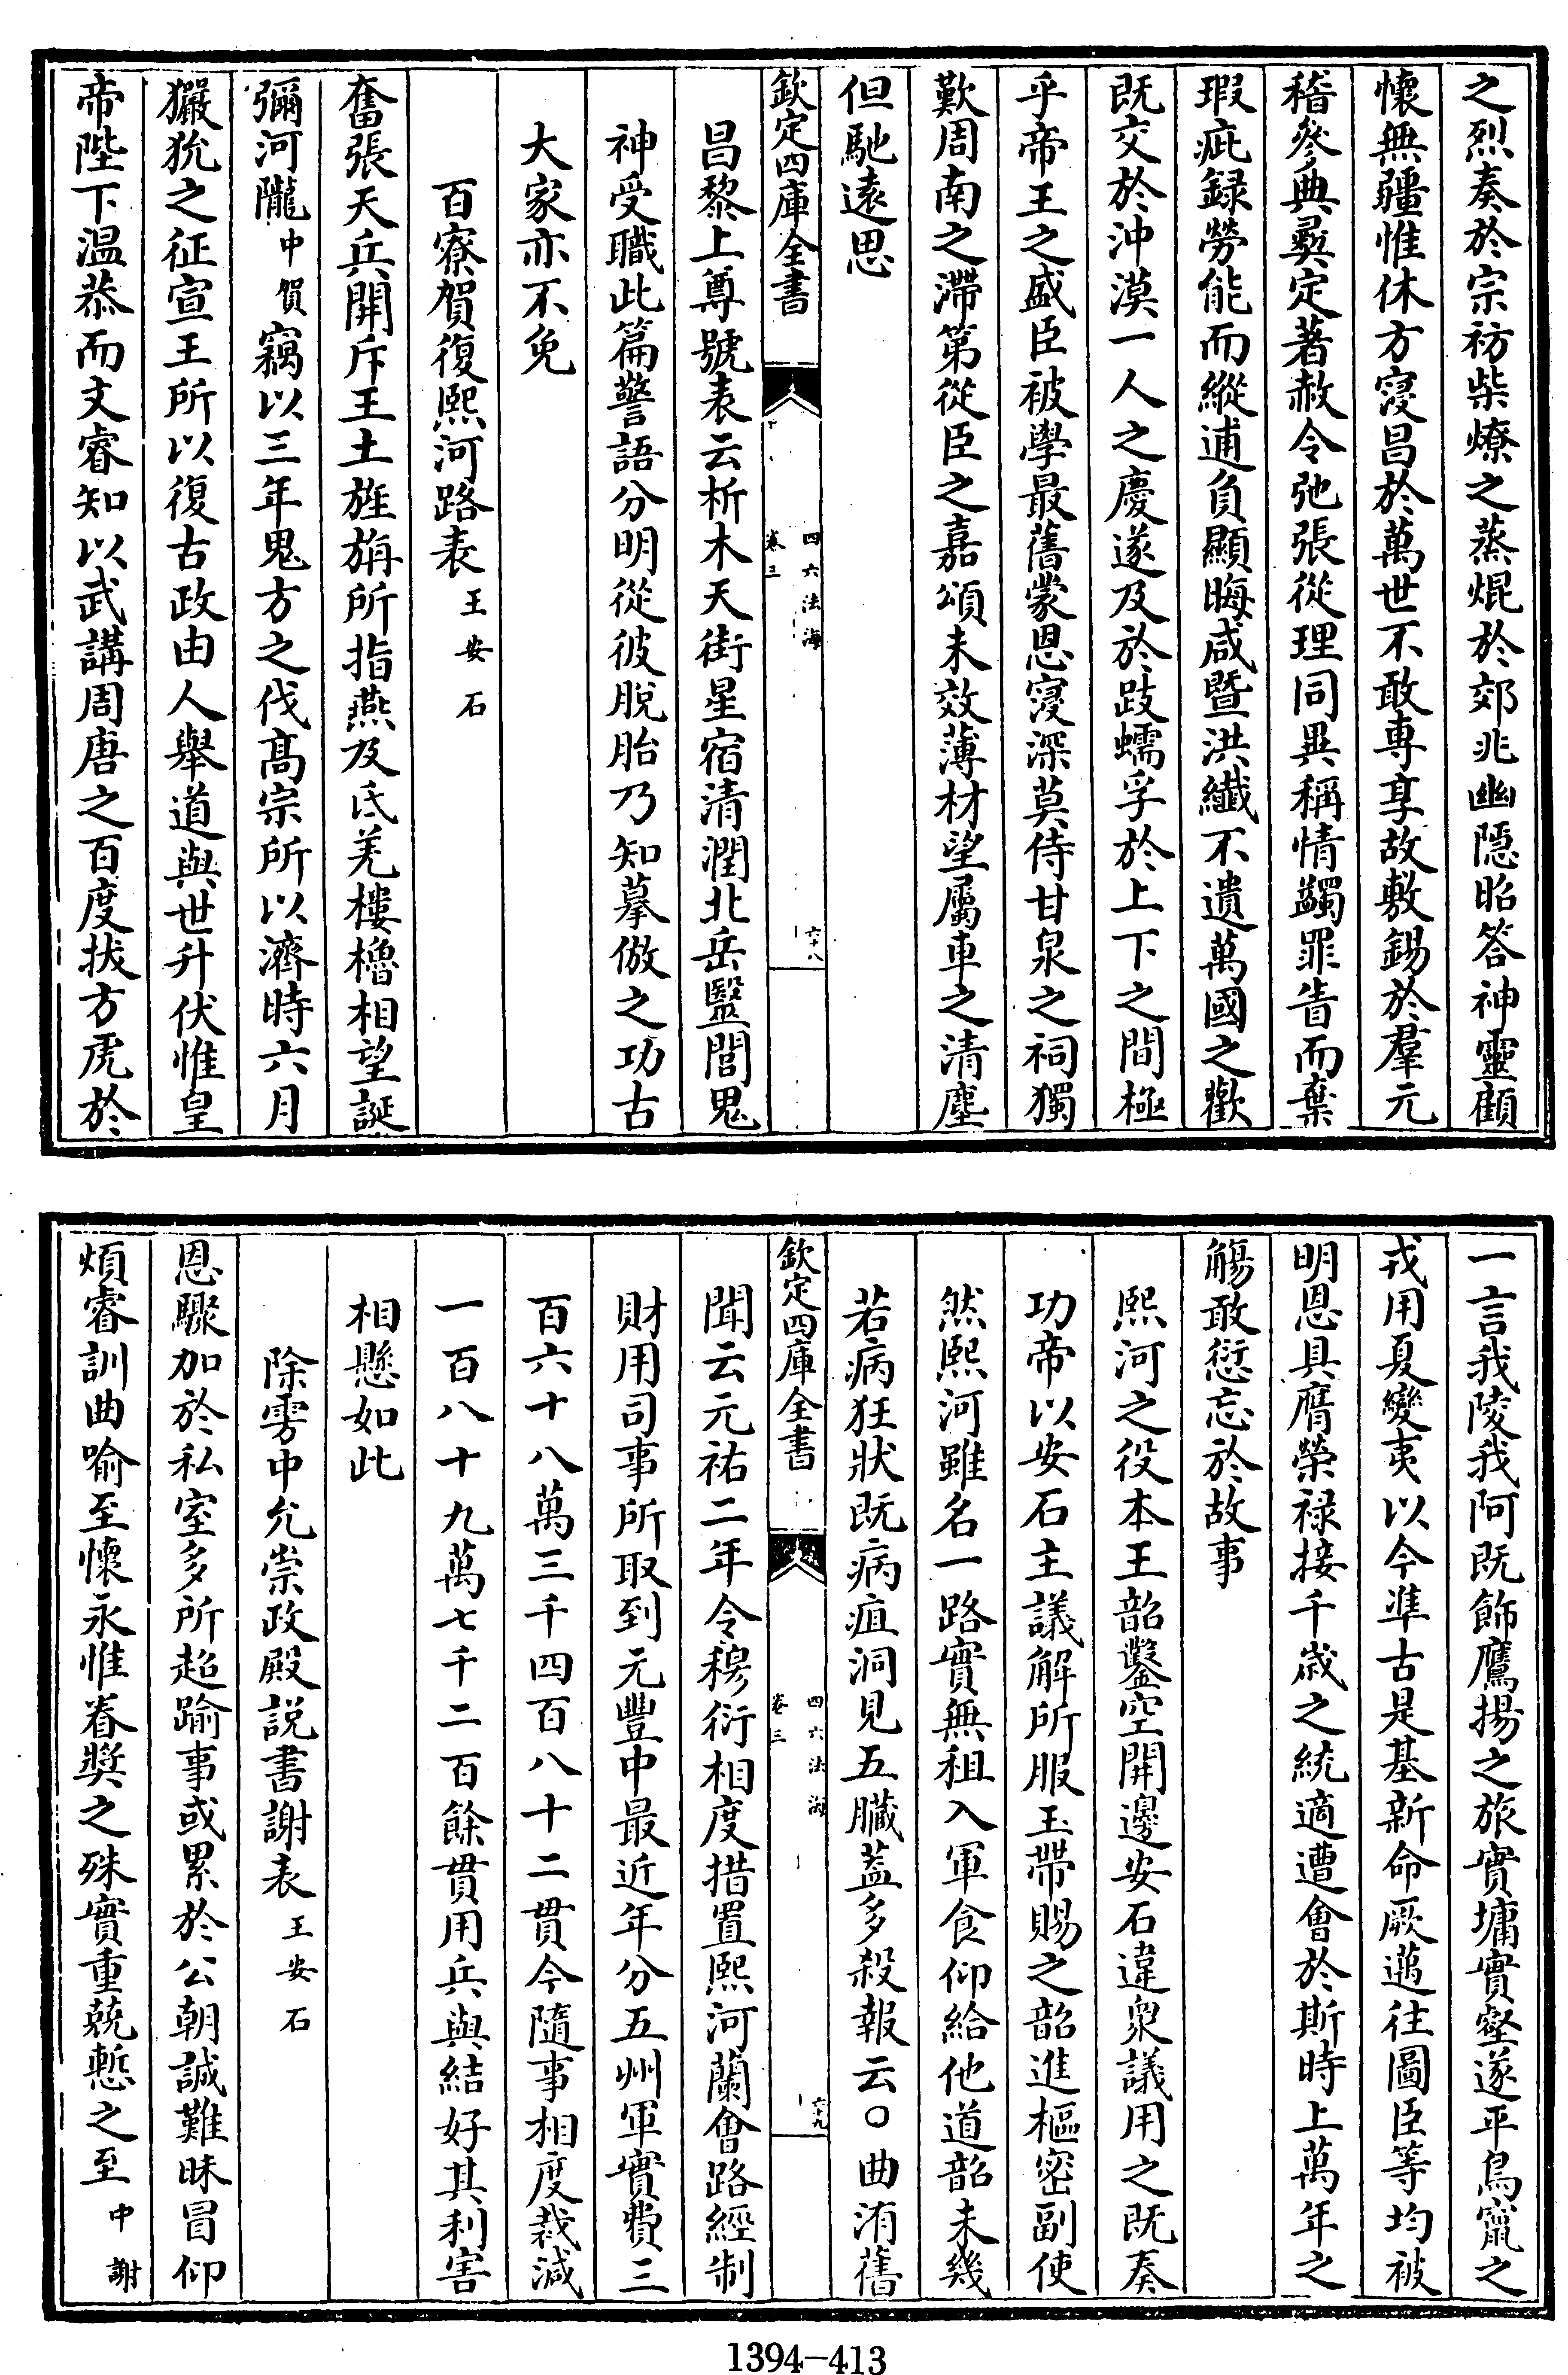 之烈奏於宗祊柴燎之蒸焜於郊兆幽隠昭答神靈顧
懷無疆惟休方寖昌於萬世不敢專享故敷錫於羣元
稽參典彛定著赦令弛張從理同異稱情蠲罪眚而棄
瑕疵録勞能而縱逋負顯晦咸暨洪纖不遺萬國之歡
既交於沖漠一人之慶遂及於跂蠕孚於上下之間極
乎帝王之盛臣被學最舊蒙恩寖深莫侍甘泉之祠獨
歎周南之滯第從臣之嘉頌未效薄材望屬車之清塵
但馳遠思
欽定四庫全書
四六法海
卷三
六十八
昌黎上尊號表云析木天街星宿清潤北岳毉閭鬼
神受職此篇警語分明從彼脫胎乃知摹倣之功古
大家亦不免
百寮賀復熙河路表 王安石
奮張天兵開斥王土旌旃所指燕及氐羌樓櫓相望誕
彌河隴 中賀 竊以三年鬼方之伐髙宗所以濟時六月
玁狁之征宣王所以復古政由人舉道與世升伏惟皇
帝陛下温恭而文睿知以武講周唐之百度拔方虎於
一言我陵我阿既飾鷹揚之旅實墉實壑遂平鳥竄之
戎用夏變夷以今準古是基新命厥邁往圖臣等均被
明恩具膺榮禄接千歳之統適遭會於斯時上萬年之
觴敢愆忘於故事
熙河之役本王韶鑿空開邊安石違衆議用之既奏
功帝以安石主議解所服玉帶賜之韶進樞密副使
然熙河雖名一路實無租入軍食仰給他道韶未幾
若病狂狀既病疽洞見五臟葢多殺報云○曲洧舊
欽定四庫全書
四六法海
卷三
六十九
聞云元祐二年令穆衍相度措置熙河蘭會路經制
財用司事所取到元豐中最近年分五州軍實費三
百六十八萬三千四百八十二貫今隨事相度裁減
一百八十九萬七千二百餘貫用兵與結好其利害
相懸如此
除雱中允崇政殿説書謝表 王安石
恩驟加於私室多所超踰事或累於公朝誠難昧冒仰
煩睿訓曲喻至懷永惟眷奬之殊實重兢慙之至 中謝
1394-413